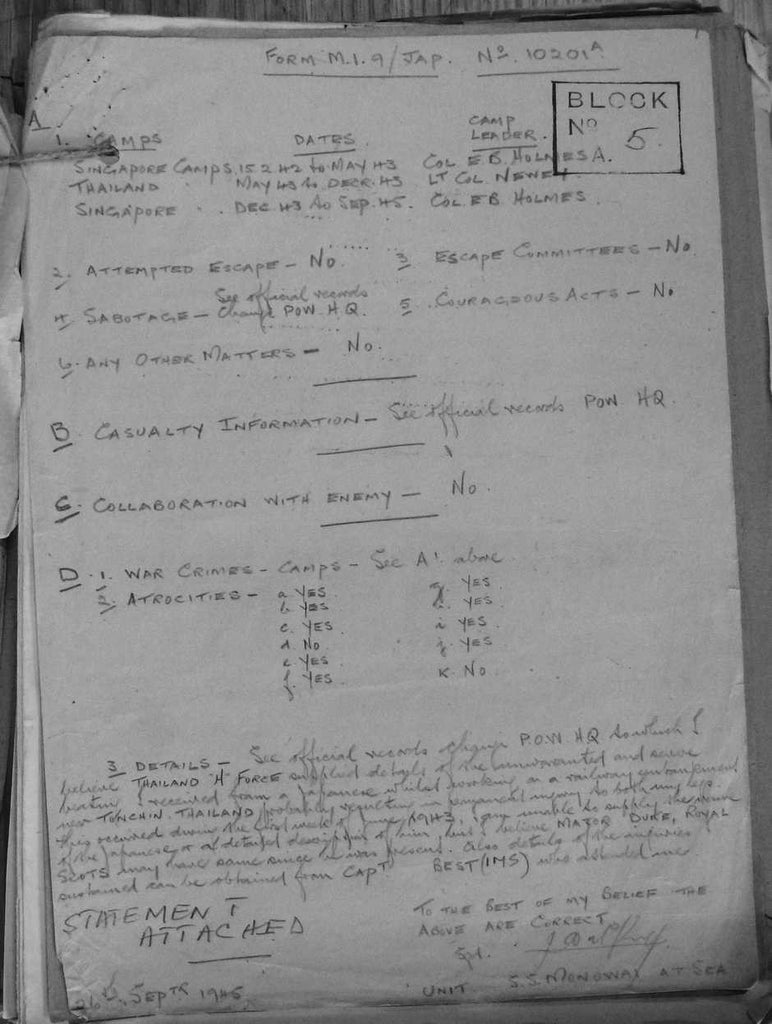 FORM M.I.9/JAP. No. 10201A
BLOCK
No 5.
A
1. CAMPS DATES. CAMP LEADER.
SINGAPORE CAMPS. 15 2 42 to MAY 43 COL E.B. HOLMES A.
THAILAND MAY 43 to DECR. 43 LT COL NEWEY
SINGAPORE DEC 43 to SEP. 45. COL. EB HOLMES.
2. ATTEMPTED ESCAPE - No. 3 ESCAPE COMMITTEES - No.
4. SABOTAGE - See official records Changi POW. H.Q. 5. COURAGEOUS ACTS - No
6. ANY OTHER MATTERS - No.
B. CASUALTY INFORMATION - See official records POW HQ.
C. COLLABORATION WITH ENEMY - No.
D. 1. WAR CRIMES - CAMPS - See A1 above
2. ATROCITIES - a YES g. YES
b. YES h. YES
c. YES i YES
d. NO j. YES
e. YES K. NO
f. YES
3. DETAILS - See official records Changi P.O.W HQ to which I
believe THAILAND "H" FORCE supplied details of the unwarranted and severe
beating I received from a Japanese whilst working on a railway embankment
near TONCHIN, THAILAND probably resulting in permanent injury to both my legs.
This occurred during the last week of June 1943. I am unable to supply the name
of the Japanese or a detailed description of him, but I believe MAJOR DUKE, ROYAL
SCOTS may have same since he was present. Also details of the injuries
sustained can be obtained from CAPT BEST (IMS) who attended me
STATEMENT
ATTACHED
TO THE BEST OF MY BELIEF THE
ABOVE ARE CORRECT
Sgd.
26th SEPTR 1945 UNIT S.S. MONOWAI AT SEA